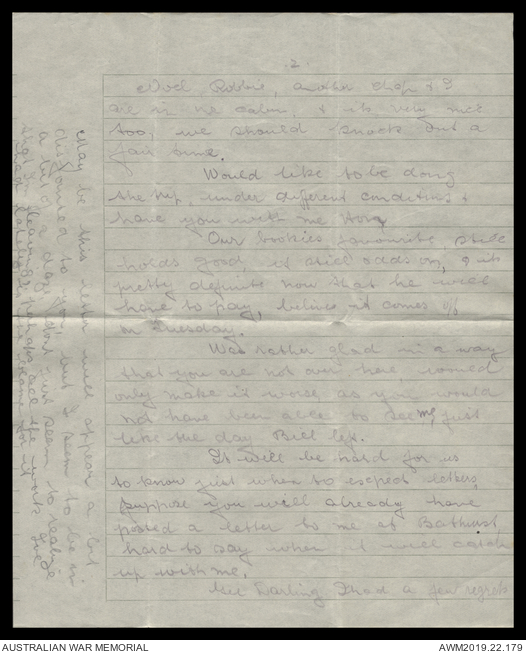 .2.
Noel Robbie, another chap & I
are in the cabin, & its very nice
too, we should knock out a
fair time.
Would like to be doing
the trip, under different conditions &
have you with me Hon,
Our bookies favourite, still
holds good, it still odds on, & its
pretty definite now that he will
have to pay, believe it comes off
on Tuesday.
Was rather glad in a way
that you are not over here, would
only make it worse as you would
not have been able to see me, just
like the day Bill left.
It will be hard for us
to know just when to expect letters,
suppose you will already have
posted a letter to me at Bathurst,
hard to say when it will catch
up with me.
Gee Darling I had a few regrets
May be this letter will appear a bit
disjointed to you, but I seem to be in
a bit of a daze, dont just seem to realize
that I'm leaving, perhaps all the work I've
had lately is to blame for it
AUSTRALIAN WAR MEMORIAL
AWM2019.22.179